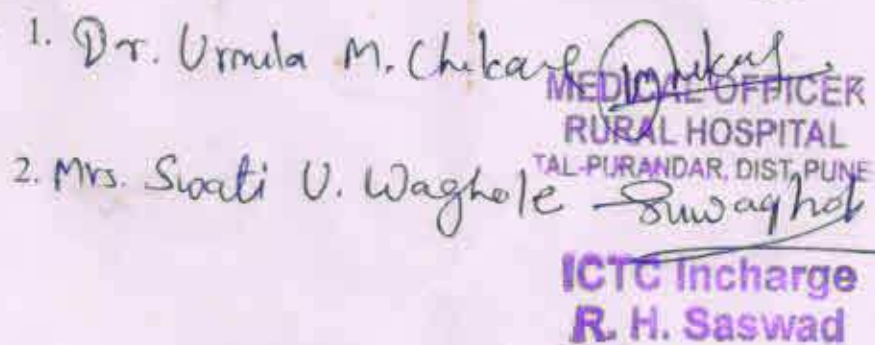 1. Dr. Urmila M. Chikane
MEDICAL OFFICER
RURAL HOSPITAL
TAL-PURANDAR, DIST, PUNE
2. Mrs. Swati U. Waghole Suwaghol
ICTC Incharge
R. H. Saswad